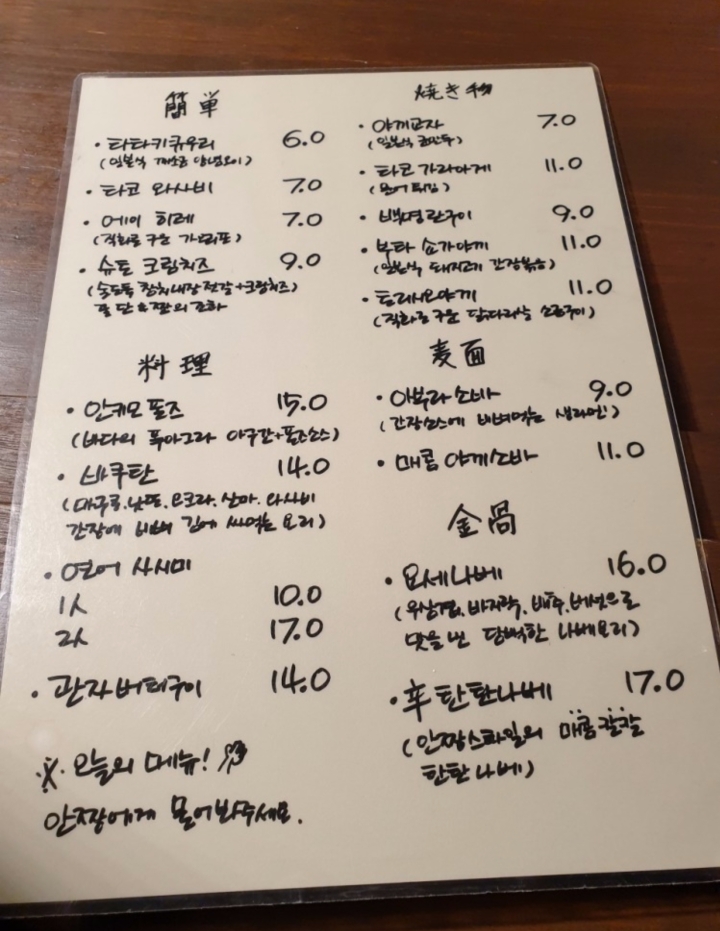 簡単
· 타타키큐우리 6.0
(일본식 깨소금 양념오이)
· 타코 와사비 7.0
· 에이 히레 7.0
(직화로 구운 가오리포)
· 슈토 크림치즈 9.0
(술도둑 참치내장젓갈+크림치즈)
단&짠의 조화
料理
· 안키모 폰즈 15.0
(바다의 푸아그라 아구간+폰즈소스)
· 바쿠탄 14.0
(마구로.낫또.오크라.산마.와사비
간장에 비벼 김에 싸먹는 요리)
· 연어 사시미
1人 10.0
2人 17.0
· 관자버터구이 14.0
※. 오늘의 메뉴!
안짱에게 물어봐주세요.
焼き物
· 야끼교자 7.0
(일본식 군만두)
· 타코 가라아게 11.0
(문어 튀김)
· 백명란구이 9.0
· 부타 쇼가야끼 11.0
(일본식 돼지고기 간장볶음)
· 토리시오야끼 11.0
(직화로 구운 닭다리살 소금구이)
麦面
· 아부라소바 9.0
(간장소스에 비벼먹는 생라멘)
· 매콤 야끼소바 11.0
金鍋
· 요세나베 16.0
(우삼겹, 바지락, 배추, 버섯으로
맛을 낸 담백한 나베요리)
· 辛 탄탄나베 17.0
(안짱스타일의 매콤칼칼
탄탄나베)